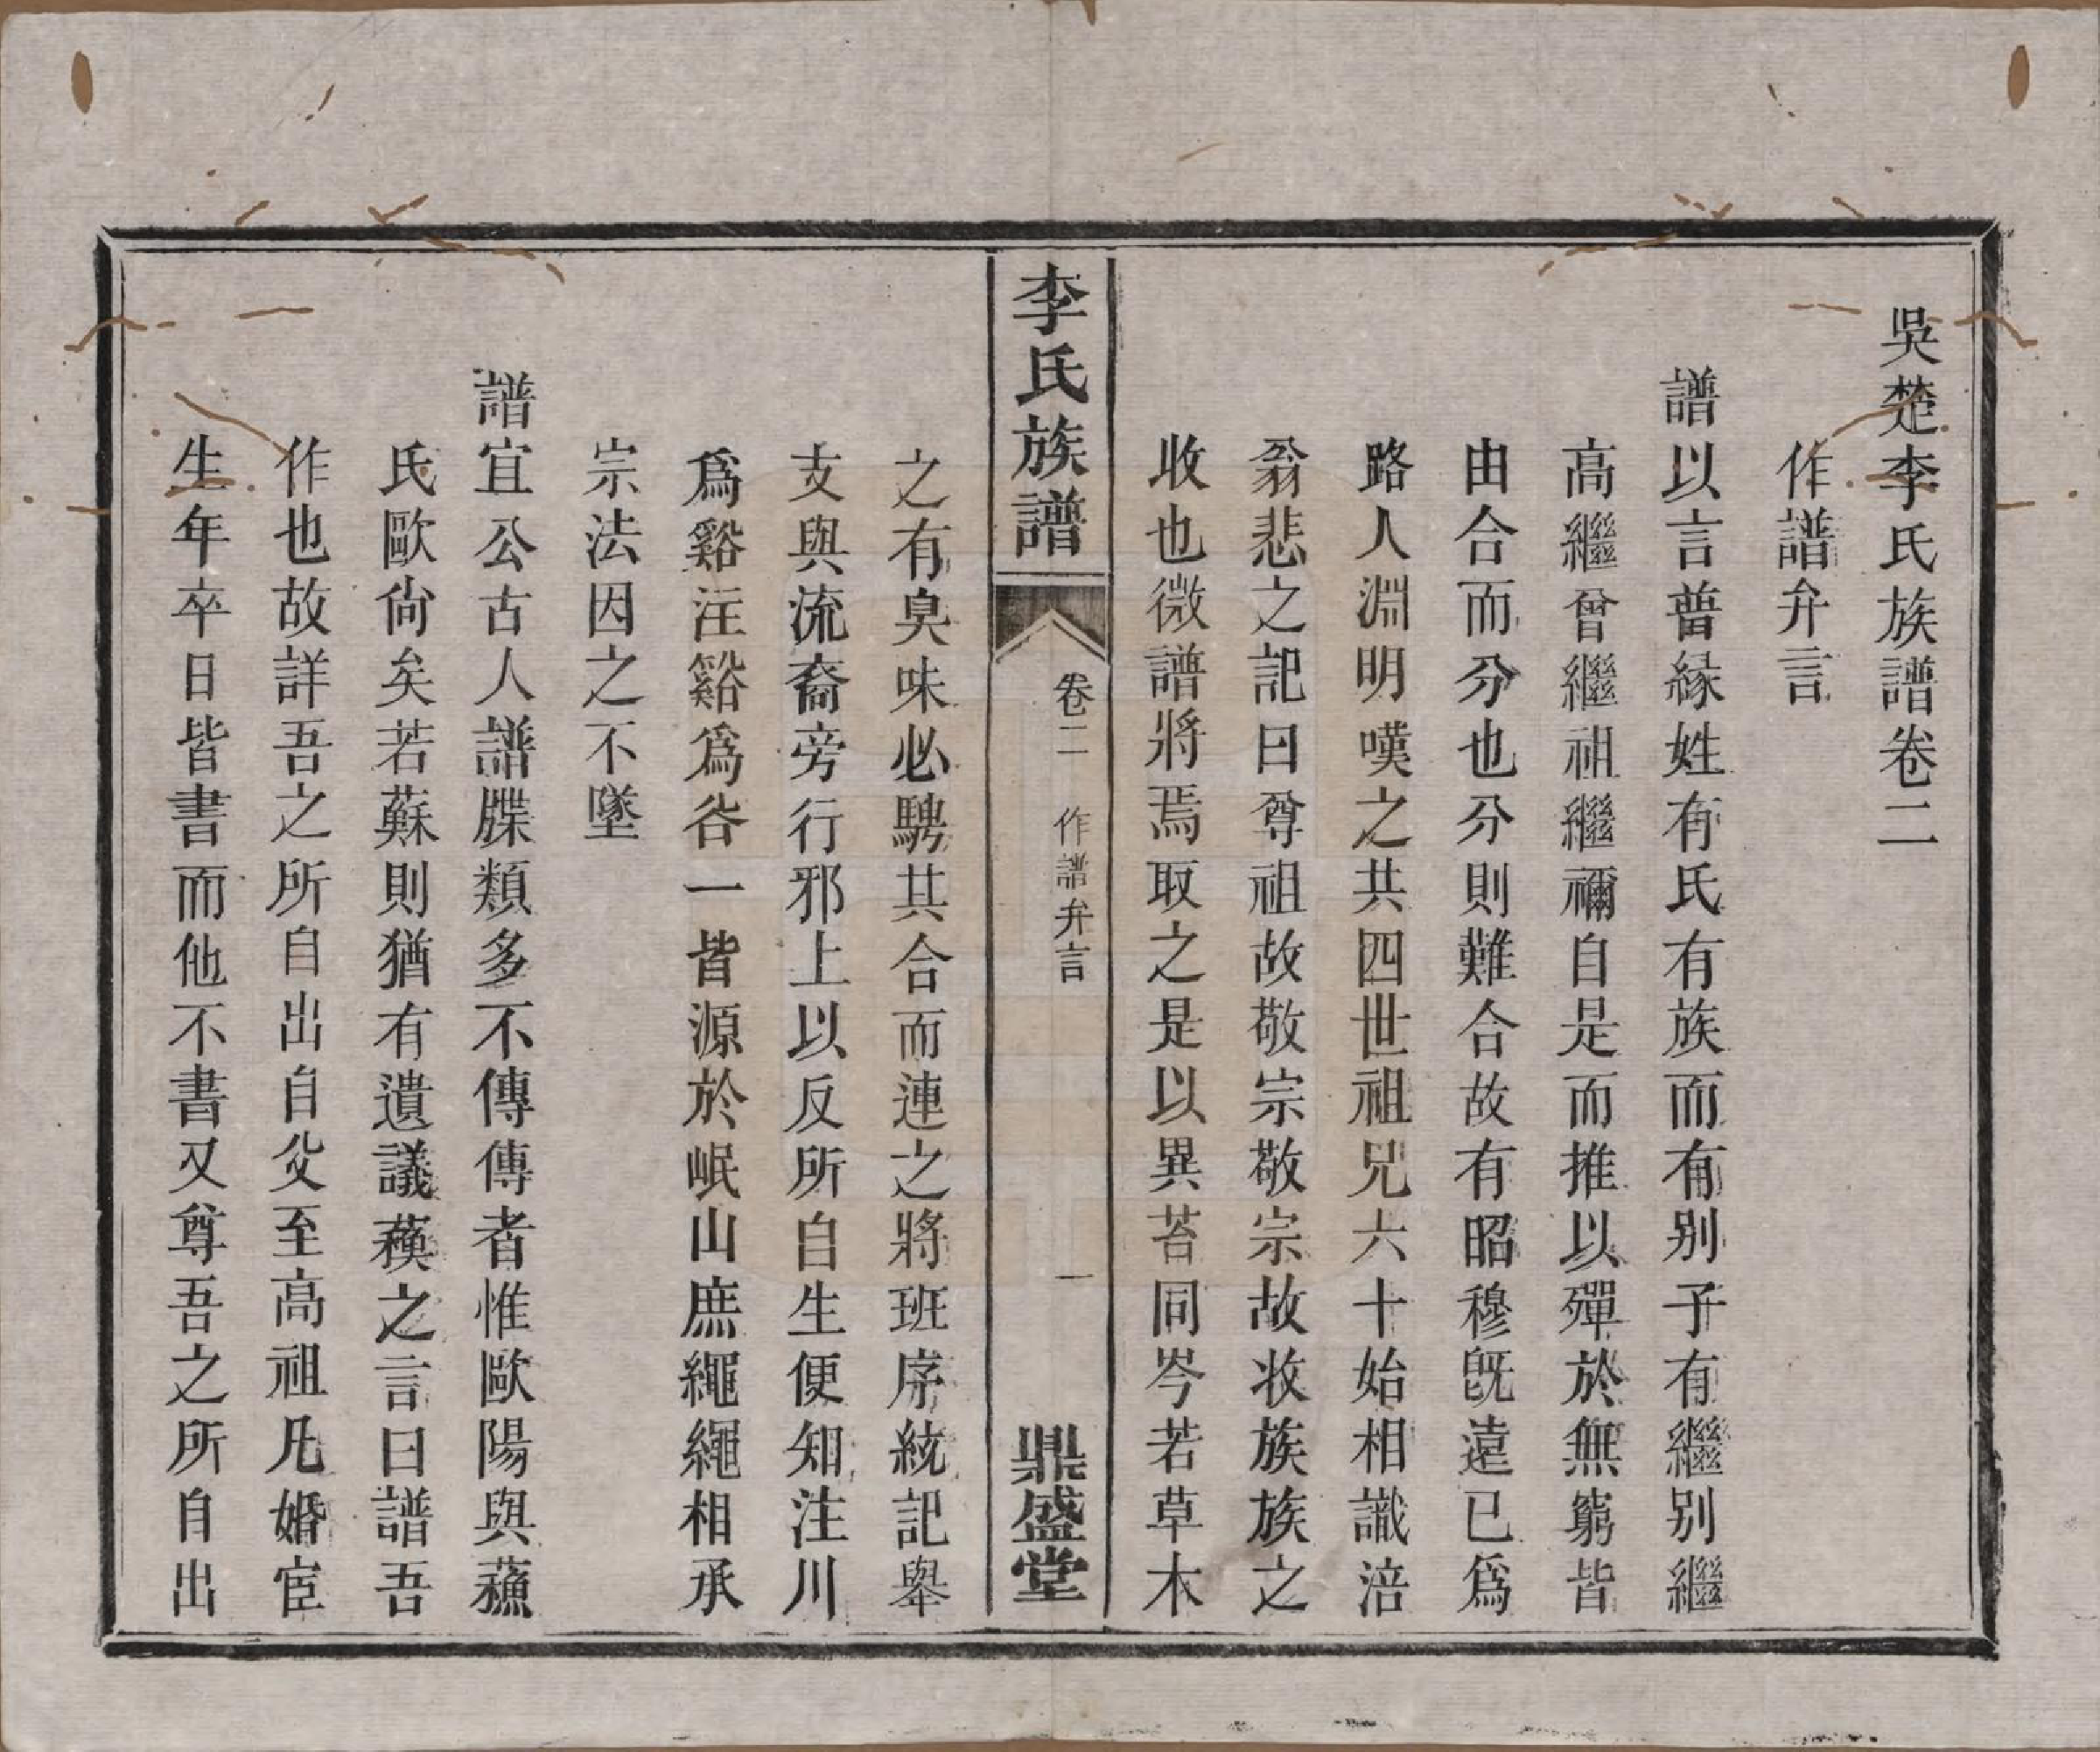 吳楚李氏族譜卷二
作譜弁言
譜以言普緣姓有氏有族而有別子有繼別繼
高繼曾繼祖繼禰自是而推以殫於無窮皆
由合而分也分則難合故有昭穆旣遠已爲
路人淵明嘆之共四世祖兄六十始相識涪
翁悲之記曰尊祖故敬宗敬宗故收族族之
收也微譜將焉取之是以異苔同岑若草木
李氏族譜
卷二 作譜弁言
一
鼎盛堂
之有臭味必騁其合而連之將班序統記舉
支與流裔旁行邪上以反所自生便知注川
爲谿注谿爲谷一皆源於岷山庶繩繩相承
宗法因之不墜
譜宜公古人譜牒類多不傳傳者惟歐陽與蘓
氏歐尙矣若蘇則猶有遺議蘓之言曰譜吾
作也故詳吾之所自出自父至高祖凡婚宦
生年卒日皆書而他不書又尊吾之所自出